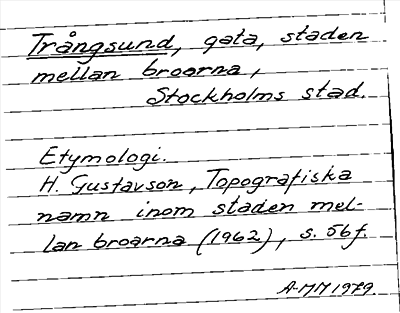 Trångsund, gata, staden
mellan broarna,
Stockholms stad.
Etymologi.
H. Gustavson, Topografiska
namn inom staden mel-
lan broarna (1962), s. 56 f.
A-MM 1979.